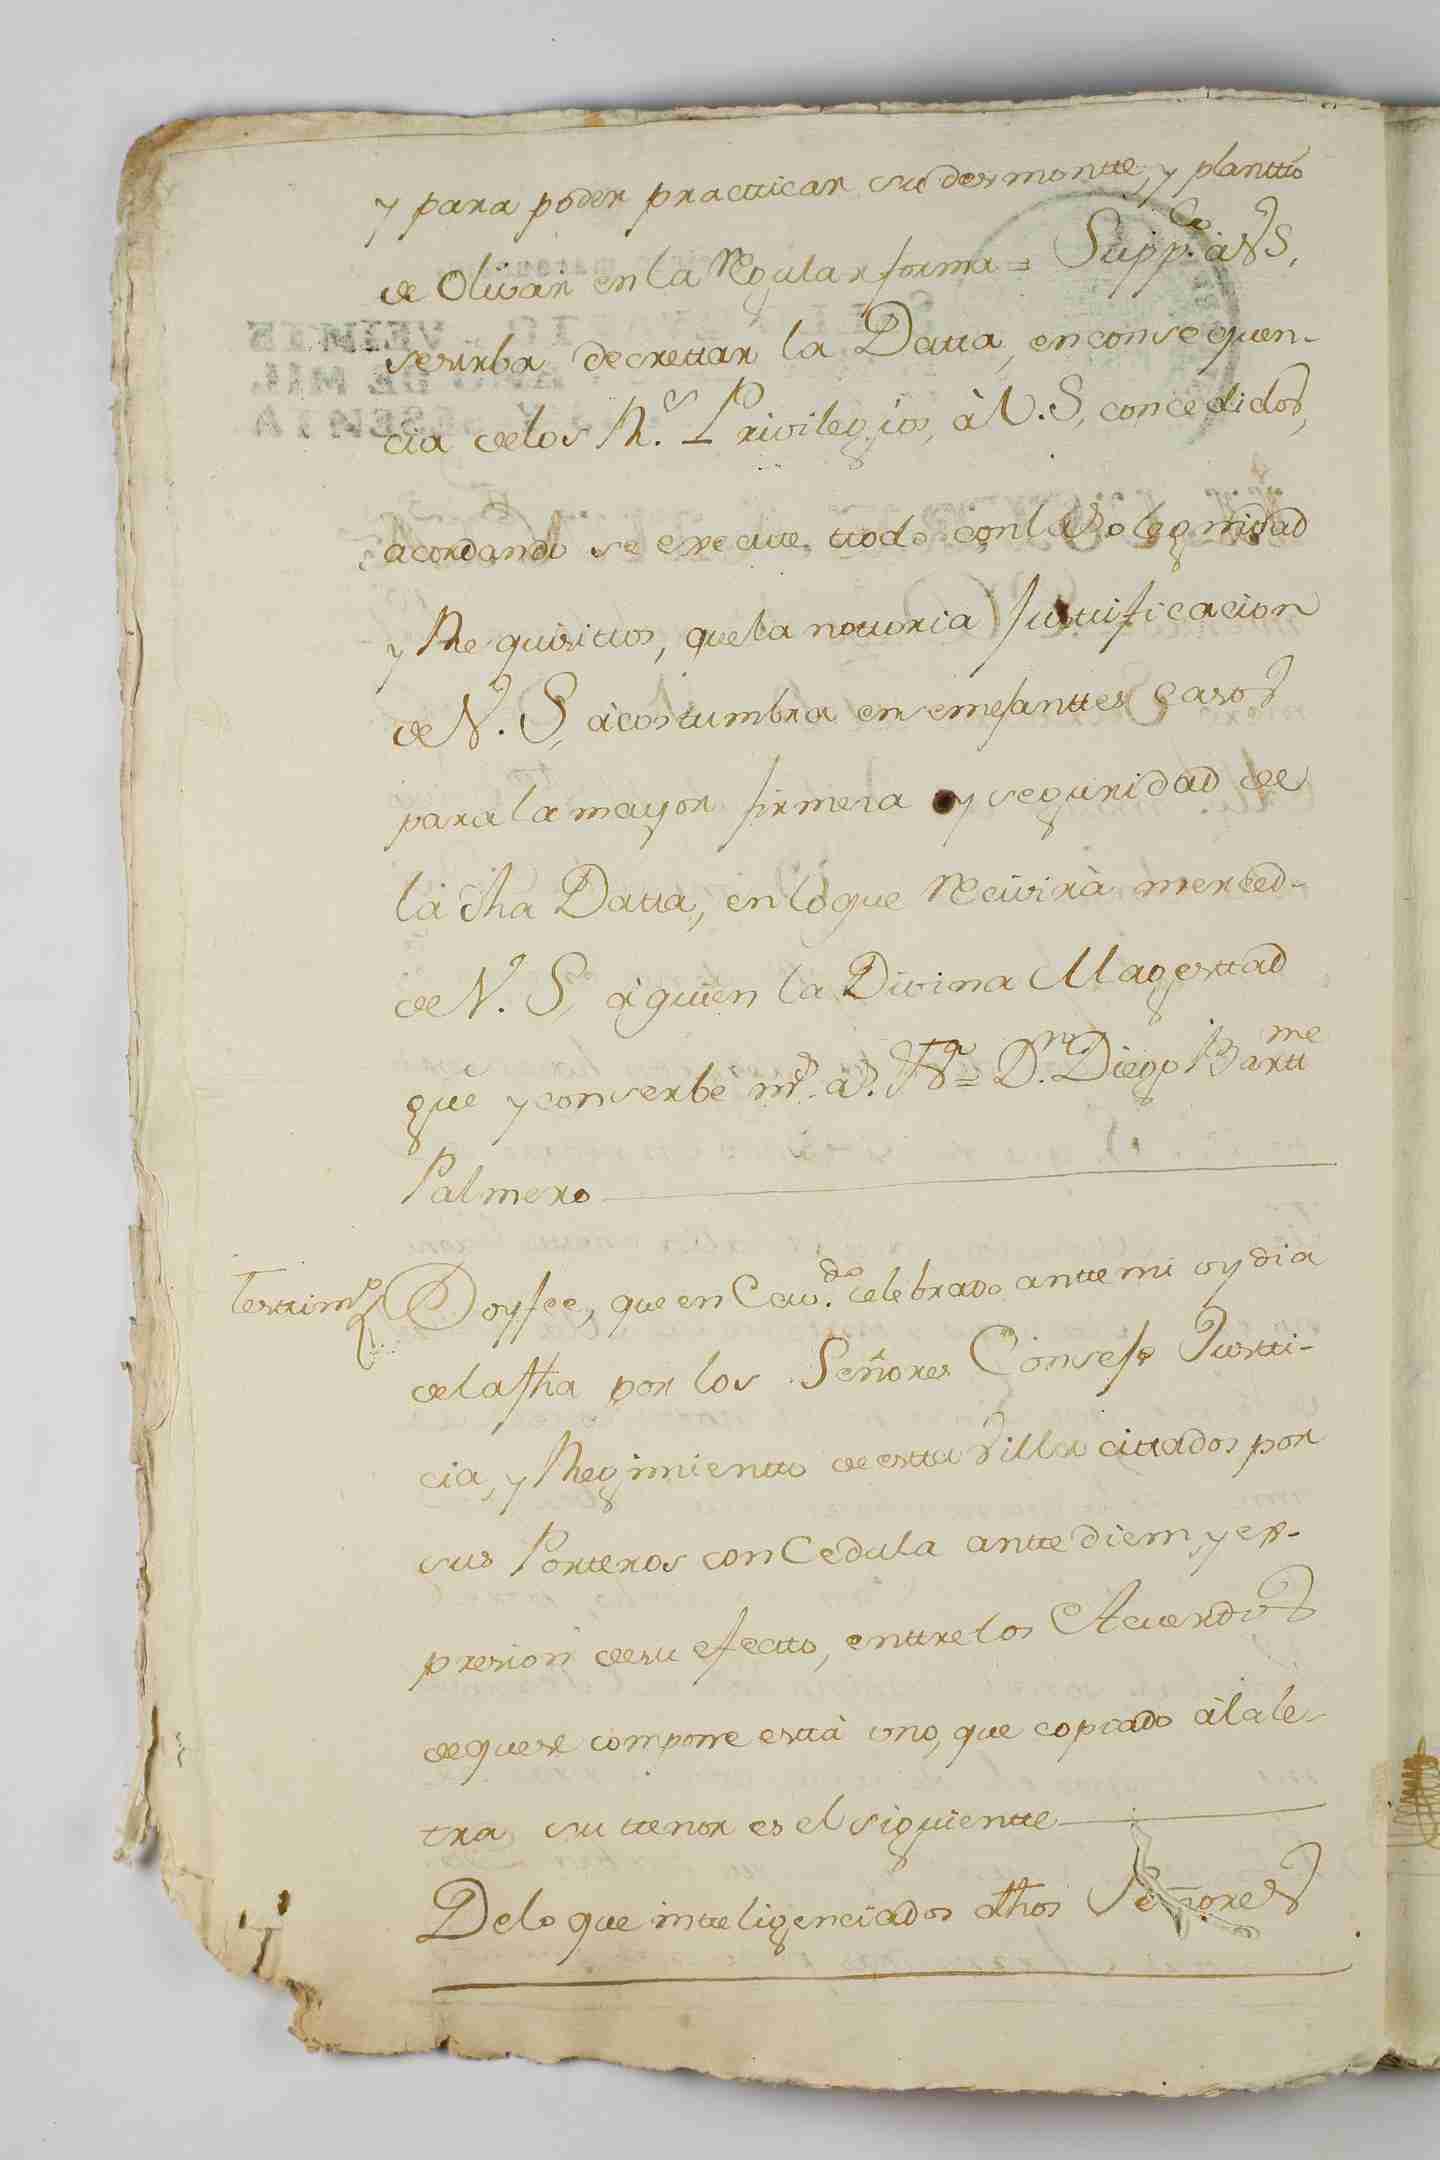 y para poder practticar su desmontte, y planttio
de Olivar en la Regular forma = Supp.co à V.S,
se sirba decrettar la Datta, en consequen-
cia de los R.s Privilegios, à V.S, concedidos,
acordando se execute ttodo con la Solegnidad
y Requisittos, que la nottoria Justtificacion
de V. S, àcostumbra en semejanttes Casos
para la mayor firmeza y seguridad de
la dha Datta, en lo que Recivirà merced-
de V. S, à quien la Divina Magesttad
gue y conserbe m.s a.s
= D.n Diego Bartt.me
Palmero
Testtim.o Doy fee, que en Cav.do celebrado antte mi oy dia
de la fha por los Señores Consejo Justti-
cia, y Regimientto de estta Villa cittados por
sus Porteros con Cedula antte diem, y ex-
presion de su efectto, enttre los Acuerdos
de que se compone esttà uno, que copiado à la le-
tra su ttenor es el siguientte
De lo que intteligenciados dhos Señores